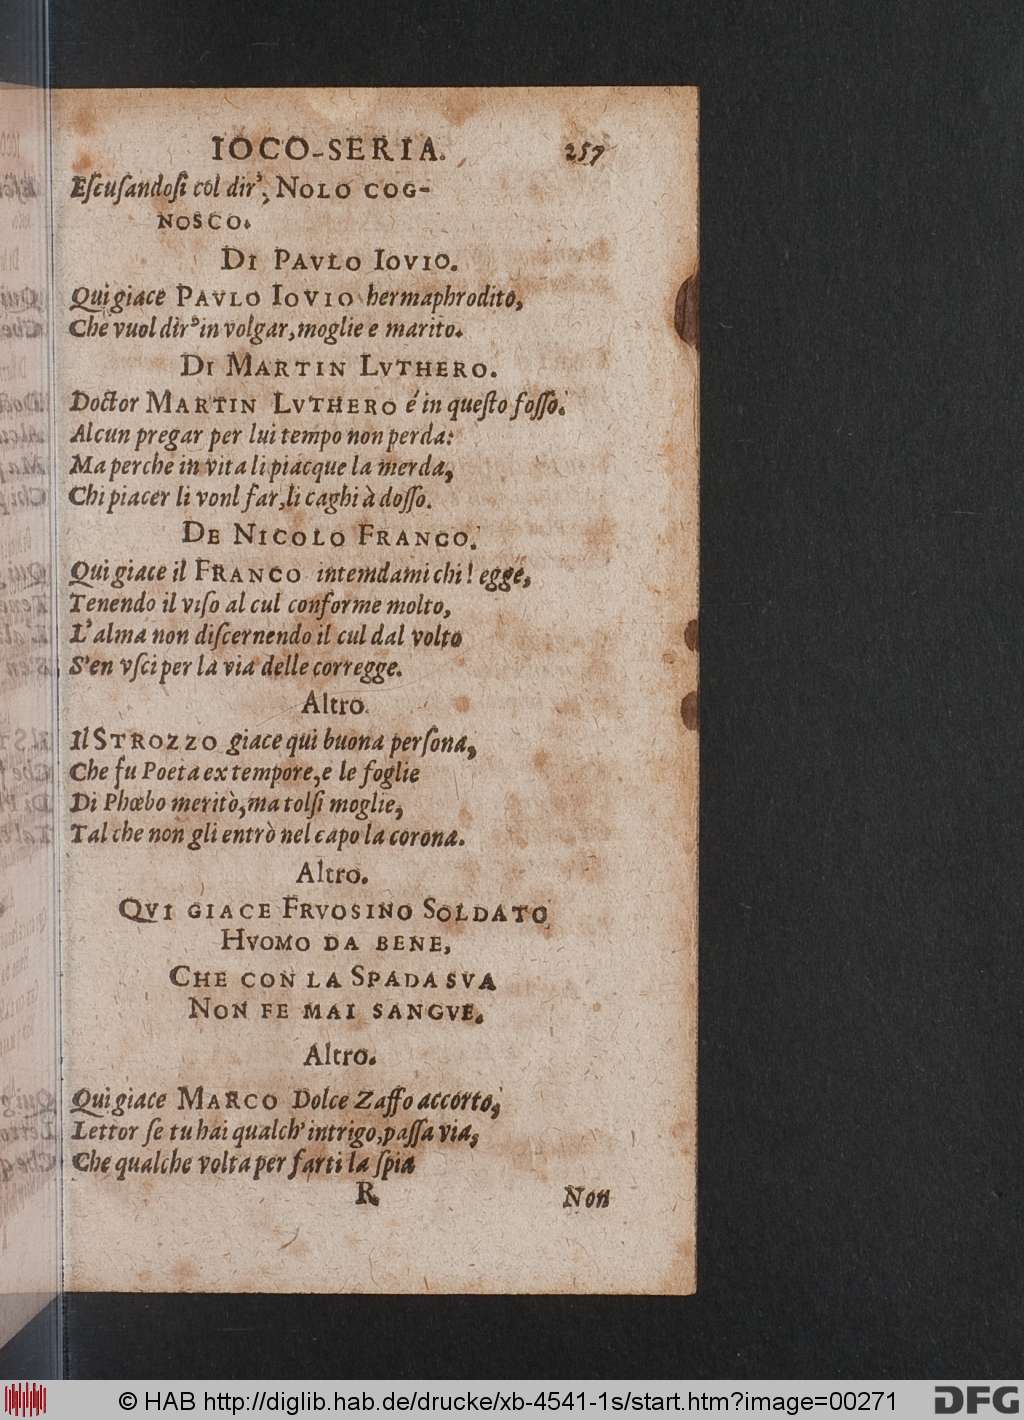 IOCO-SERIA. 257
Eſcuſandoſi col dir', NOLO COG-
NOSCO.
DI PAVLO IOVIO.
Qui giace PAVLO IOVIO hermaphrodito,
Che vuol dir' in volgar, moglie e marito.
DI MARTIN LVTHERO.
Doctor MARTIN LVTHERO é in queſto foſſo.
Alcun pregar per lui tempo non perda:
Ma perche in vita li piacque la merda,
Chi piacer li vonl far, li caghi à doſſo.
DE NICOLO FRANCO.
Qui giace il FRANCO intemdami chi ! egge,
Tenendo il viſo al cul conforme molto,
L'alma non diſcernendo il cul dal volto
S'en vſci per la via delle corregge.
Altro.
Il STROZZO giace qui buona perſona,
Che fu Poeta ex tempore, e le foglie
Di Phœbo meritò, ma tolſi moglie,
Tal che non gli entrò nel capo la corona.
Altro.
QVI GIACE FRVOSINO SOLDATO
HVOMO DA BENE,
CHE CON LA SPADA SVA
NON FE MAI SANGVE.
Altro.
Qui giace MARCO Dolce Zaffo accorto,
Lettor ſe tu hai qualch' intrigo, paſſa via,
Che qualche volta per farti la ſpia
R Non
© HAB http://diglib.hab.de/drucke/xb-4541-1s/start.htm?image=00271 DFG